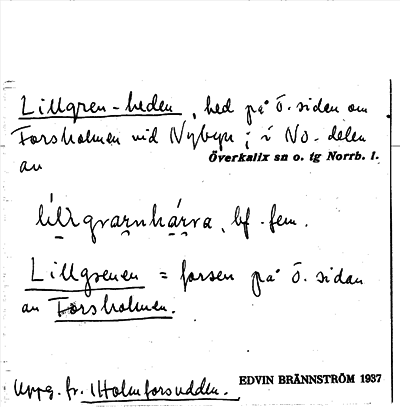 Lillgren-heden, hed på Ö. sidan om
Forsholmen vid Nybyn; i NO-delen
av
Överkalix sn o. tg Norrb. l.
bf. fem.
Lillgrenen = forsen på Ö. sidan
av Forsholmen.
Uppg. fr. Holmforsudden.
EDVIN BRÄNNSTRÖM 1937